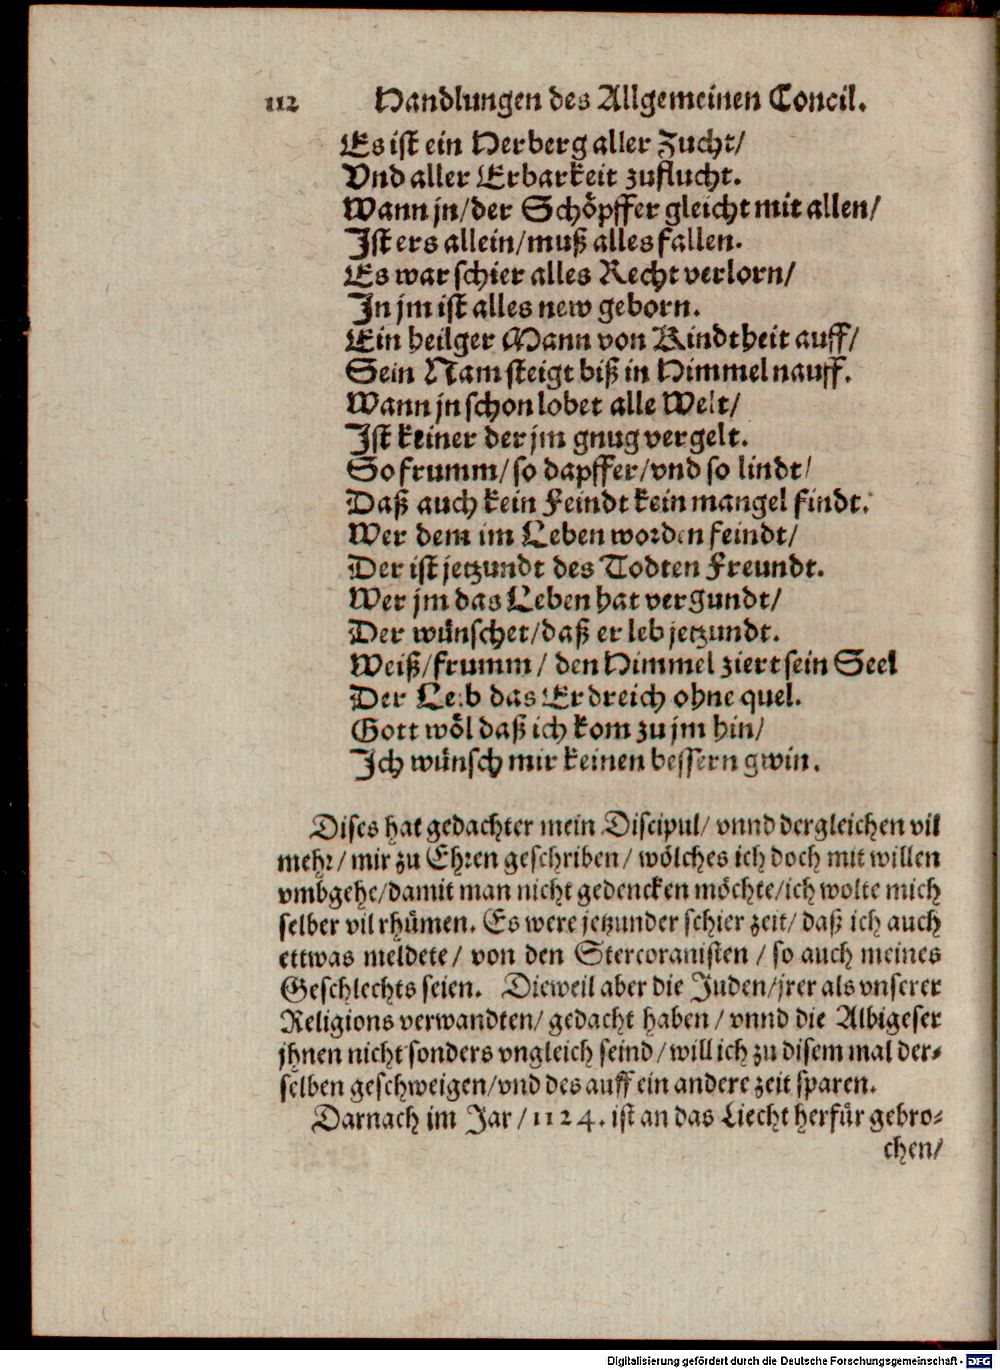 112 Handlungen des Allgemeinen Concil.
Es ist ein Herberg aller Zucht/
Vnd aller Erbarkeit zuflucht.
Wann jn/der Schöpffer gleicht mit allen/
Ist ers allein/muß alles fallen.
Es war schier alles Recht verlorn/
In jm ist alles new geborn.
Ein heilger Mann von Kindtheit auff/
Sein Nam steigt biß in Himmel nauff.
Wann jn schon lobet alle Welt/
Ist keiner der jm gnug vergelt.
So frumm/so dapffer/vnd so lindt/
Daß auch kein Feindt kein mangel findt.
Wer dem im Leben worden feindt/
Der ist jetzundt des Todten Freundt.
Wer jm das Leben hat vergundt/
Der wünschet/daß er leb jetzundt.
Weiß/frumm/ den Himmel ziert sein Seel
Der Leib das Erdreich ohne quel.
Gott wöl daß ich kom zu jm hin/
Ich wünsch mir keinen bessern gwin.
Dises hat gedachter mein Discipul/ vnnd dergleichen vil
mehr/mir zu Ehren geschriben/ wölches ich doch mit willen
vmbgehe/damit man nicht gedencken möchte/ich wolte mich
selber vil rhümen. Es were jetzunder schier zeit/ daß ich auch
ettwas meldete/ von den Stercoranisten / so auch meines
Geschlechts seien. Dieweil aber die Juden/jrer als vnserer
Religions verwandten/ gedacht haben / vnnd die Albigeser
jhnen nicht sonders vngleich seind/will ich zu disem mal der-
selben geschweigen/vnd des auff ein andere zeit sparen.
Darnach im Jar /1124. ist an das Liecht herfür gebro-
chen/
Digitalisierung gefördert durch die Deutsche Forschungsgemeinschaft - DFG